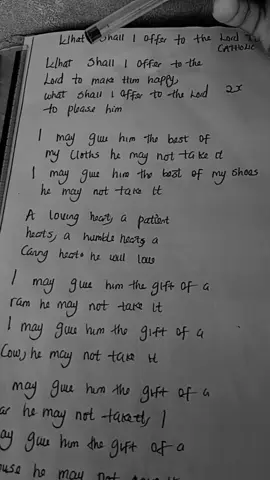 What shall I offer to the Lord
CATHOLIC
What shall I offer to the
Lord to make Him happy,
what shall I offer to the Lord 2x
to please him
I may give him the best of
my cloths he may not take it
I may give him the best of my shoes
he may not take it
A loving heart, a patient
heart, a humble heart, a
Caring heart he will love
I may give him the gift of a
ram he may not take it
I may give him the gift of a
Cow, he may not take it
may give him the gift of a
he may not take it, I
give him the gift of a
he may not